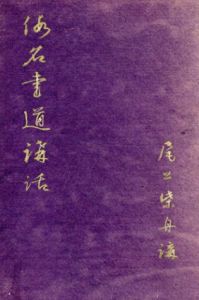 仮名書道講話
尾上柴舟講